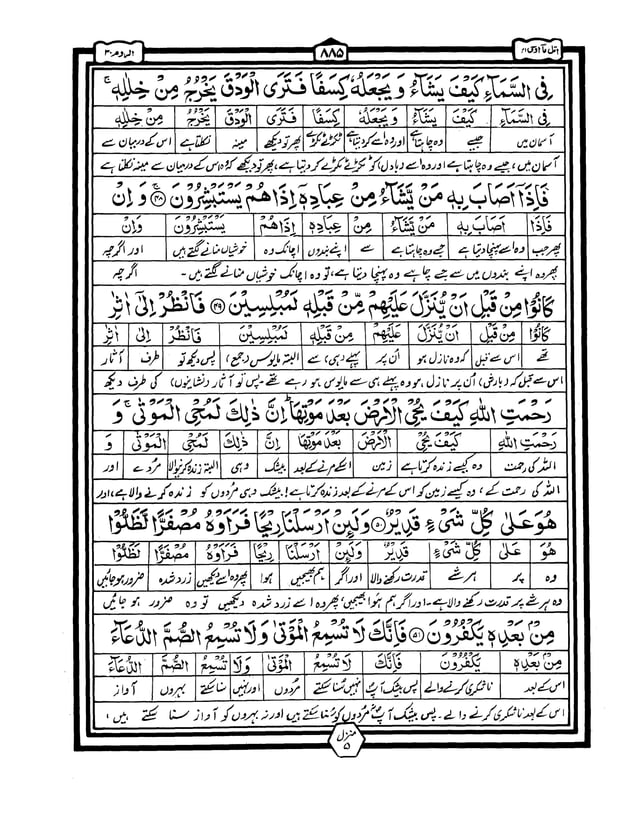 اتل ما اوحی ۲۱ ۸۸۵ الروم ۳۰
فِی السَّمَآءِ کَیْفَ یَشَآءُ وَ یَجْعَلُهٗ کِسَفًا فَتَرَی الْوَدْقَ یَخْرُجُ مِنْ خِلٰلِهٖ ۚ
فِی السَّمَآءِ کَیْفَ یَشَآءُ وَیَجْعَلُهٗ کِسَفًا فَتَرَی الْوَدْقَ یَخْرُجُ مِنْ خِلٰلِهٖ
آسمان میں جیسے وہ چاہتا ہے اور وہ اسے کردیتا ہے ٹکڑے ٹکڑے پھر تو دیکھے مینہ نکلتا ہے اس کے درمیان سے
آسمان میں، جیسے وہ چاہتا ہے اور وہ اسے (بادل) کو ٹکڑے ٹکڑے کر دیتا ہے، پھر تو دیکھے کہ اس کے درمیان سے مینہ نکلتا ہے
فَاِذَاۤ اَصَابَ بِهٖ مَنْ یَّشَآءُ مِنْ عِبَادِهٖۤ اِذَا هُمْ یَسْتَبْشِرُوْنَ ﴿۴۸﴾ وَ اِنْ
فَاِذَاۤ اَصَابَ بِهٖ مَنْ یَّشَآءُ مِنْ عِبَادِهٖۤ اِذَا هُمْ یَسْتَبْشِرُوْنَ وَاِنْ
پھر جب وہ اسے پہنچا دیتا ہے جسے وہ چاہتا ہے سے اپنے بندوں اچانک وہ خوشیاں منانے لگتے ہیں اور اگرچہ
پھر وہ اپنے بندوں میں سے جسے چاہے وہ پہنچا دیتا ہے، تو وہ اچانک خوشیاں منانے لگتے ہیں۔ اگرچہ
کَانُوْا مِنْ قَبْلِ اَنْ یُّنَزَّلَ عَلَیْهِمْ مِّنْ قَبْلِهٖ لَمُبْلِسِیْنَ ﴿۴۹﴾ فَانْظُرْ اِلٰۤی اٰثٰرِ
کَانُوْا مِنْ قَبْلِ اَنْ یُّنَزَّلَ عَلَیْهِمْ مِّنْ قَبْلِهٖ لَمُبْلِسِیْنَ فَانْظُرْ اِلٰۤی اٰثٰرِ
تھے اس سے قبل کہ وہ نازل ہو اُن پر پہلے (ہی) سے البتہ مایوس (جمع) پس دیکھ تو طرف آثار
اس سے قبل کہ (بارش) اُن پر نازل ہو وہ پہلے ہی سے مایوس ہو رہے تھے۔ پس تو آثار (نشانیوں) کی طرف دیکھ
رَحْمَتِ اللّٰهِ کَیْفَ یُحْیِ الْاَرْضَ بَعْدَ مَوْتِهَا ؕ اِنَّ ذٰلِکَ لَمُحْیِ الْمَوْتٰی ۚ وَ
رَحْمَتِ اللّٰهِ کَیْفَ یُحْیِ الْاَرْضَ بَعْدَ مَوْتِهَا اِنَّ ذٰلِکَ لَمُحْیِ الْمَوْتٰی وَ
اللہ کی رحمت وہ کیسے زندہ کرتا ہے زمین اسکے مرنے کے بعد بیشک وہی البتہ زندہ کرنیوالا مُردے اور
اللہ کی رحمت کے، وہ کیسے زمین کو اس کے مرنے کے بعد زندہ کرتا ہے! بیشک وہی مُردوں کو زندہ کرنے والا ہے، اور
هُوَ عَلٰی کُلِّ شَیْءٍ قَدِیْرٌ ﴿۵۰﴾ وَلَئِنْ اَرْسَلْنَا رِیْحًا فَرَاَوْهُ مُصْفَرًّا لَّظَلُّوْا
هُوَ عَلٰی کُلِّ شَیْءٍ قَدِیْرٌ وَلَئِنْ اَرْسَلْنَا رِیْحًا فَرَاَوْهُ مُصْفَرًّا لَّظَلُّوْا
وہ پر ہر شے قدرت رکھنے والا اور اگر ہم بھیجیں ہوا پھر وہ اسے دیکھیں زرد شدہ ضرور ہوجائیں
وہ ہر شے پر قدرت رکھنے والا ہے۔ اور اگر ہم ہوا بھیجیں، پھر وہ اسے زرد شدہ دیکھیں تو وہ ضرور ہو جائیں
مِنْۢ بَعْدِهٖ یَکْفُرُوْنَ ﴿۵۱﴾ فَاِنَّکَ لَا تُسْمِعُ الْمَوْتٰی وَلَا تُسْمِعُ الصُّمَّ الدُّعَآءَ
مِنْۢ بَعْدِهٖ یَکْفُرُوْنَ فَاِنَّکَ لَا تُسْمِعُ الْمَوْتٰی وَلَا تُسْمِعُ الصُّمَّ الدُّعَآءَ
اس کے بعد ناشکری کرنے والے پس بیشک آپؐ نہیں سُنا سکتے مُردوں اور نہیں سنا سکتے بہروں آواز
اس کے بعد ناشکری کرنے والے۔ پس بیشک آپؐ مُردوں کو نہیں سُنا سکتے اور نہ بہروں کو آواز سنا سکتے ہیں،
منزل ۵